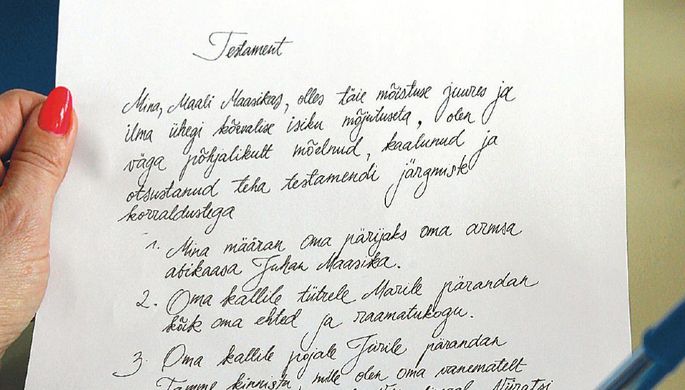 Testament
Mina, Maali Maasikas, olles täie mõistuse juures ja
ilma ühegi kõrvalise isiku mõjutuseta, olen
väga põhjalikult mõelnud, kaalunud ja
otsustanud teha testamendi järgmiste
korraldustega
1. Mina määran oma pärijaks oma armsa
abikaasa Juhan Maasika.
2. Oma kallile tütrele Marile pärandan
kõik oma ehted ja raamatukogu.
3. Oma kallile pojale Jürile pärandan
Tamme kinnistu, mille olen oma vanematelt